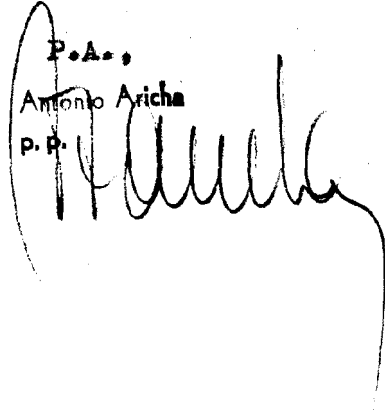 P.A.,
Antonio Aricha
p. p.